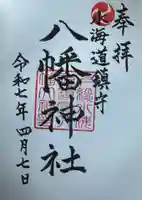 奉拝
北海道鎮守
八幡神社
令和七年四月七日